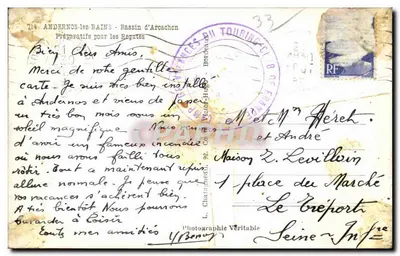 ANDERNOS-les BAINS - Bassin d'Arcachon
Préparatifs pour les Régates
33
Bien Chers Amis,
Merci de votre gentille
carte. Je suis très bien installé
à Andernos et viens de passer
un très bon mois sous un
soleil magnifique. Nous
d'avoir un fameux incendie
où nous avons failli tous
rôtir. Tout a maintenant repris
allure normale. Je pense que
vos vacances s'achèvent bien.
A très bientôt Nous pourrons
bavarder à loisir
Toutes mes amitiés
RF
M et Mme Hérch
et André
Maison Z. Levillain
1 place du Marché
Le Tréport
Seine-Infre
Photographie Véritable